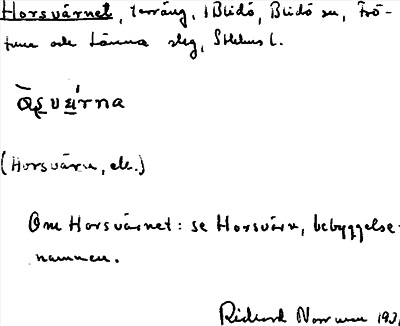 Horsvärnet, terräng, i Blidö, Blidö sn, Frö-
tuna och Länna slg, Sthlms l.
(Horsvärn, ek.)
Om Horsvärnet: se Horsvärn, bebyggelse-
namnen.
Rickard Norrman 193